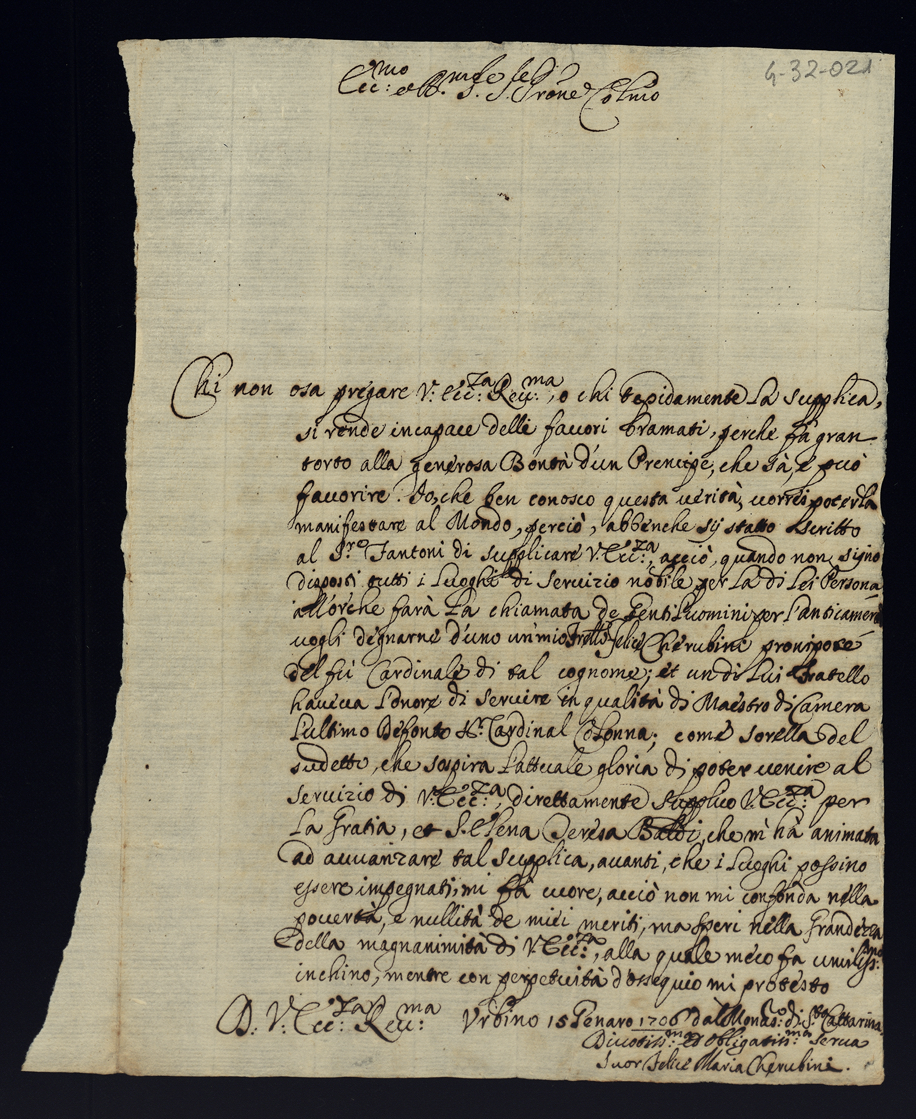 4-32-021
Ecc:mo e R.mo S.re S.r P'rone Col'mo
Chi non osa pregare V: Ecc:za Reu:ma, o chi tepidamente La supplica,
si rende incapace delli fauori bramati, perche fà gran
torto alla generosa Bontà d'un Prencipe, che sà, e può
fauorire. Io, che ben conosco questa uerità, uorrei poterla
manifestare al Mondo, perciò, abbenche sij stato scritto
al S.r Fantoni di supplicare V: Ecc:za, acciò, quando non siano
disposti tutti i Luoghi di seruizio nobile per La di Lei Persona
all'orche farà La chiamata de Gentil'uomini per l'anticamera
uogli degnarne d'uno un mio Frat'llo Felice Cherubini pronipote
del fù Cardinale di tal cognome; et un di Lui Fratello
haueua l'onore di seruire in qualità di Maestro di Camera
L'ultimo Defonto S.r Cardinal Colonna; come sorella del
sudetto, che sospira L'attuale gloria di poter uenire al
seruizio di V: Ecc:za, direttamente supplico V: Ecc:za per
La Gratia, et S. Elena Teresa Baldi, che m'hà animata
ad auuanzare tal supplica, auanti, che i Luoghi possino
essere impegnati, mi fà cuore, acciò non mi confonda nella
pouertà, e nullità de miei meriti, ma speri nella Grandezza
della magnanimità di V: Ecc:za, alla quale meco fa umiliss:mo
inchino, mentre con perpetuità d'ossequio mi protesto
D. V: Ecc:za Reu:ma Vrbino 15 Genaro 1706 dal Monas:ro di S.ta Cattarina
Diuotiss:ma et obligatiss:ma serua
Suor Felice Maria Cherubini.